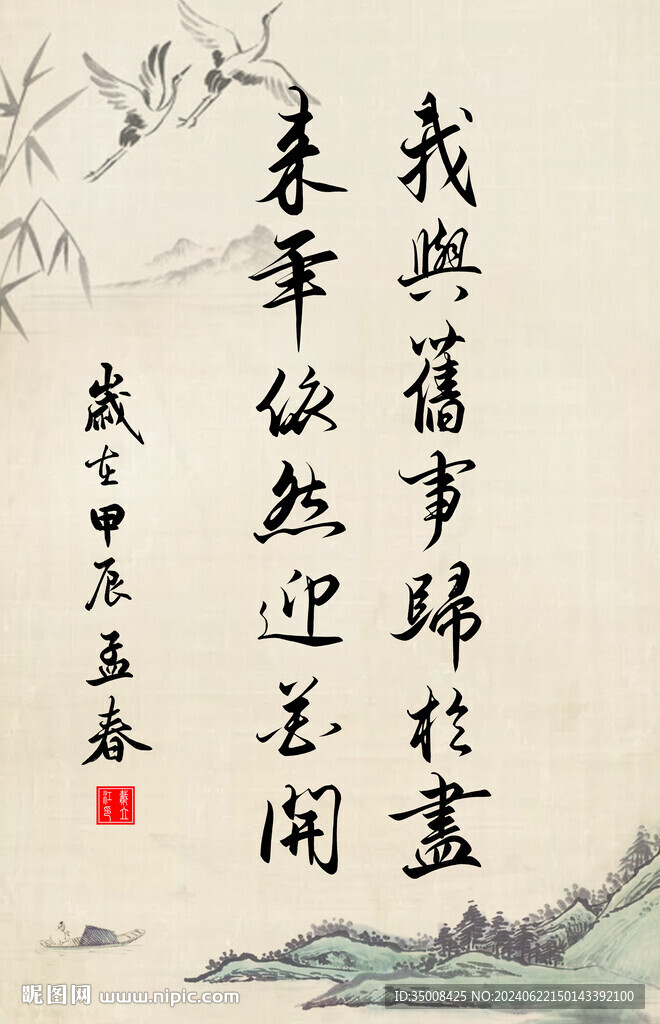 我與舊事歸於盡
来年依然迎花開
歲在甲辰孟春
昵图网 www.nipic.com
ID:35008425 NO:20240622150143392100